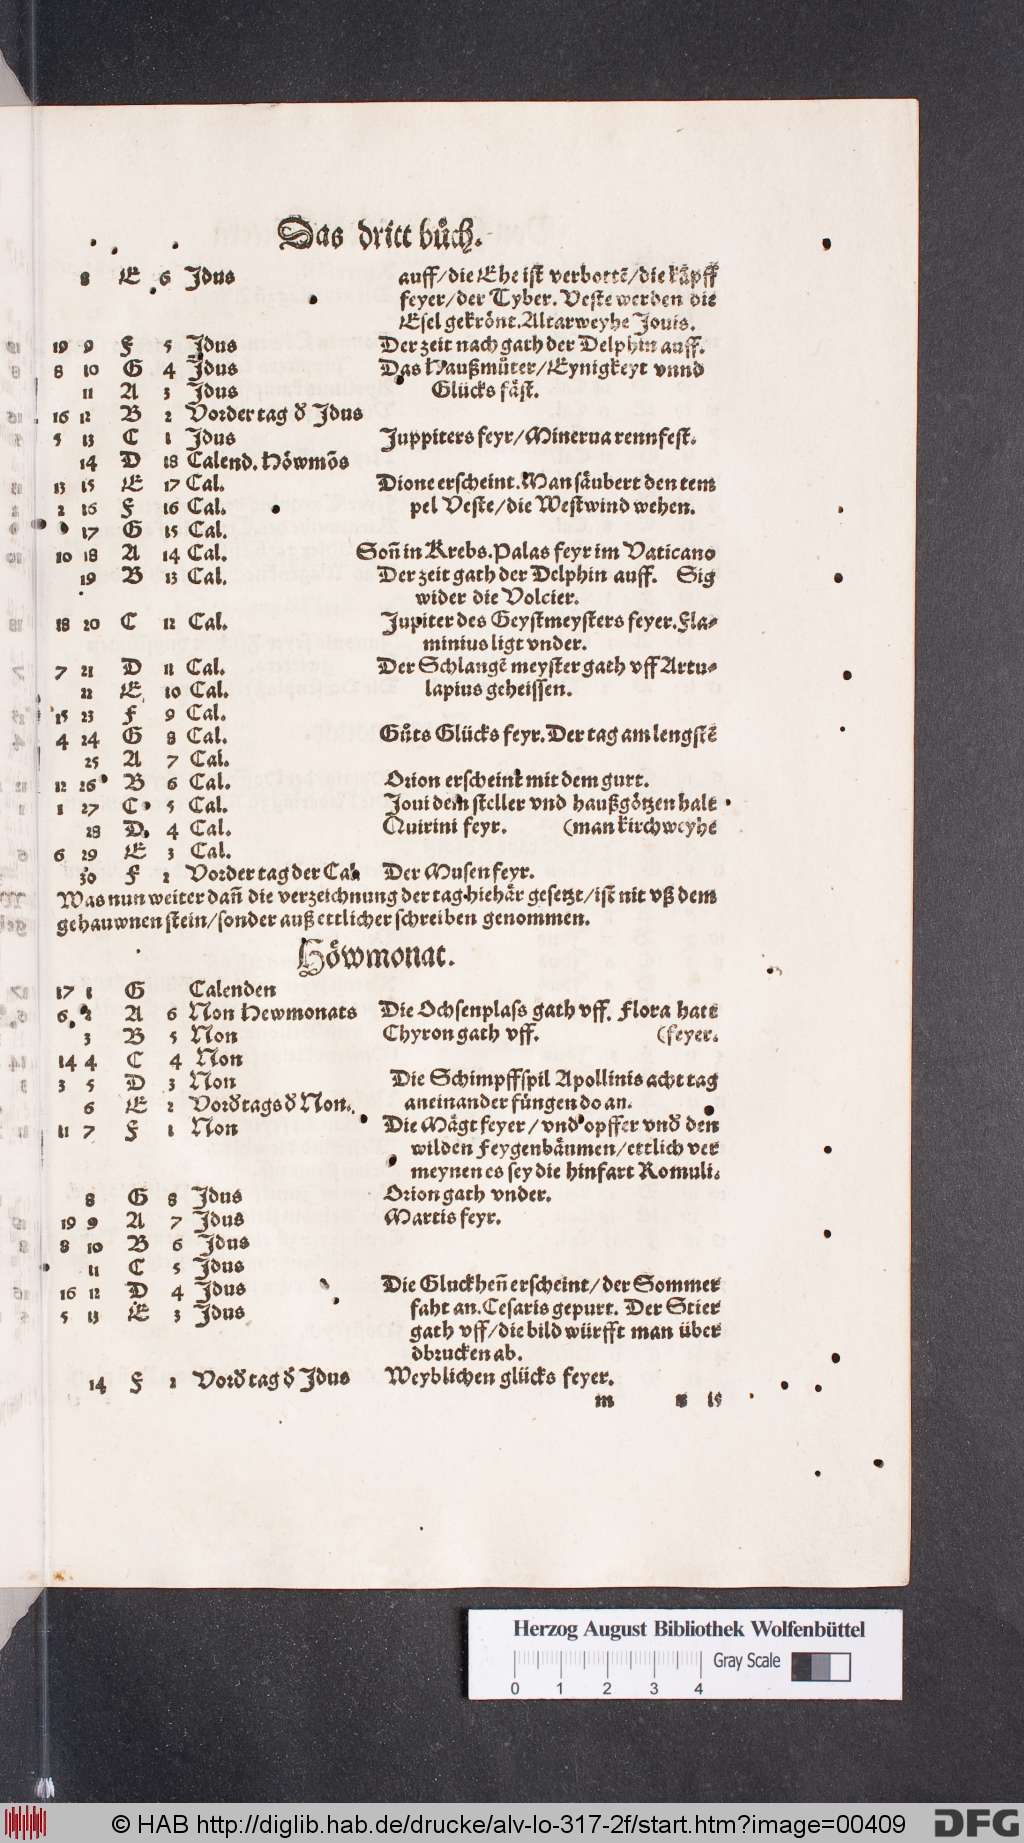 Das dritt bůch.
8 E 6 Jdus auff/die Ehe ist verbottē/die kåpff
feyer/der Tyber. Veste werden die
Esel gekrönt. Altarweyhe Jouis.
19 9 F 5 Jdus Der zeit nach gath der Delphin auff.
8 10 G 4 Jdus Das Haußmůter/Eynigkeyt vnnd
11 A 3 Jdus Glücks fäst.
16 12 B 2 Vorder tag d' Jdus
5 13 C 1 Jdus Juppiters feyr/Minerua rennfest.
14 D 18 Calend. Höwmōs
13 15 E 17 Cal. Dione erscheint. Man säubert den tem
2 16 F 16 Cal. pel Veste/die Westwind wehen.
17 G 15 Cal.
10 18 A 14 Cal. Soñ in Krebs. Palas feyr im Vaticano
19 B 13 Cal. Der zeit gath der Delphin auff. Sig
wider die Volcier.
18 20 C 12 Cal. Jupiter des Geystmeysters feyer. Fla-
minius ligt vnder.
7 21 D 11 Cal. Der Schlangē meyster gath vff Artu-
22 E 10 Cal. lapius geheissen.
15 23 F 9 Cal.
4 24 G 8 Cal. Gůts Glücks feyr. Der tag am lengstē
25 A 7 Cal.
12 26 B 6 Cal. Orion erscheint mit dem gurt.
1 27 C 5 Cal. Joui dem steller vnd haußgötzen halt
28 D 4 Cal. Quirini feyr. (man kirchweyhe
6 29 E 3 Cal.
30 F 2 Vorder tag der Cal. Der Musen feyr.
Was nun weiter dañ die verzeichnung der tag hiehär gesetzt/ist nit vß dem
gehauwnen stein/sonder auß ettlicher schreiben genommen.
Höwmonat.
17 1 G Calenden
6 2 A 6 Non Hewmonats Die Ochsenplass gath vff. Flora hats
3 B 5 Non Chyron gath vff. (feyer.
14 4 C 4 Non
3 5 D 3 Non Die Schimpffspil Apollinis acht tag
6 E 2 Vord' tags d' Non. aneinander füngen do an.
11 7 F 1 Non Die Mägt feyer/vnd opffer vnd' den
wilden Feygenbäumen/ettlich ver
meynen es sey die hinfart Romuli.
8 G 8 Jdus Orion gath vnder.
19 9 A 7 Jdus Martis feyr.
8 10 B 6 Jdus
11 C 5 Jdus
16 12 D 4 Jdus Die Gluckheñ erscheint/der Sommer
5 13 E 3 Jdus faht an. Cesaris gepurt. Der Stier
gath vff/die bild würfft man über
dbrucken ab.
14 F 2 Vord' tag d' Jdus Weyblichen glücks feyer.
m 15
Herzog August Bibliothek Wolfenbüttel
Gray Scale
0 1 2 3 4
© HAB http://diglib.hab.de/drucke/alv-lo-317-2f/start.htm?image=00409
DFG